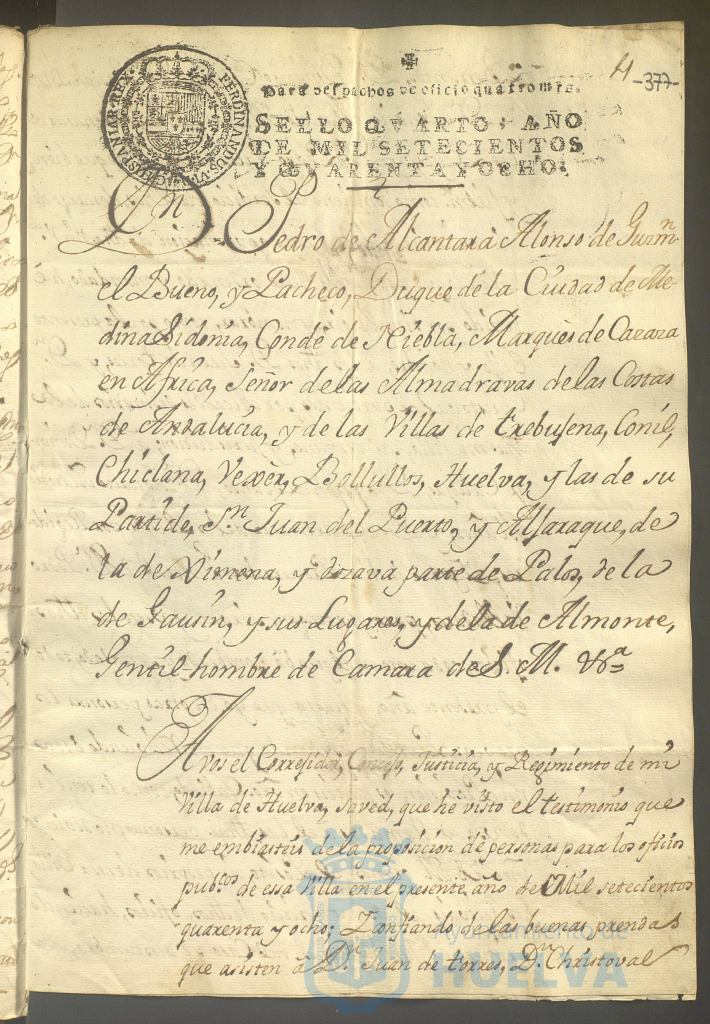 H
-377-
FERDINANDUS VI D G HISPANIAR REX
Para despachos de oficio quatro mrs.
SELLO QVARTO, AÑO
DE MIL SETECIENTOS
Y QVARENTA Y OCHO.
Dn Pedro de Alcantara Alonso de Guzmn
el Bueno, y Pacheco, Duque de la Ciudad de Me-
dina Sidonia, Conde de Niebla, Marquès de Cazaza
en Africa, Señor de las Almadravas de las Costas
de Andalucia, y de las Villas de trebujena, Conil,
Chiclana, Vexèr, Bollullos, Huelva, y las de su
Partido, Sn. Juan del Puerto, y Aljaraque, de
la de Ximena, y dozava parte de Palos, de la
de Gausin, y sus Lugares, y de la de Almonte,
Gentil-hombre de Camara de S. M. &a
A vos el Corregidor, Concejo, Justicia, y Regimiento de mi
Villa de Huelva, saved, que he visto el testimonio que
me embiasteis de la proposicion de personas para los oficios
pubcos de essa Villa en el presente año de Mil setecientos
quarenta y ocho; Y confiando de las buenas prendas
que asisten à Dn. Juan de torres, Dn. Christoval
Ayuntamiento de
HUELVA